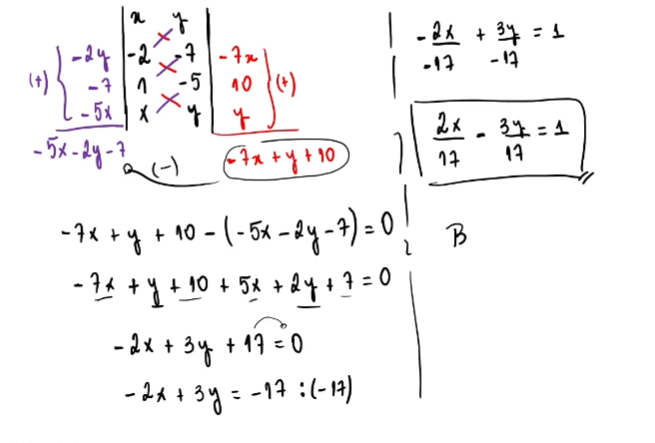 x y
-2y -2 -7 -7x
(+) -7 1 -5 10 (+)
-5x x y y
-5x-2y-7 (-) -7x+y+10
-7x + y + 10 - (-5x - 2y - 7) = 0
-7x + y + 10 + 5x + 2y + 7 = 0
-2x + 3y + 17 = 0
-2x + 3y = -17 :(-17)
-2x/-17 + 3y/-17 = 1
2x/17 - 3y/17 = 1
B